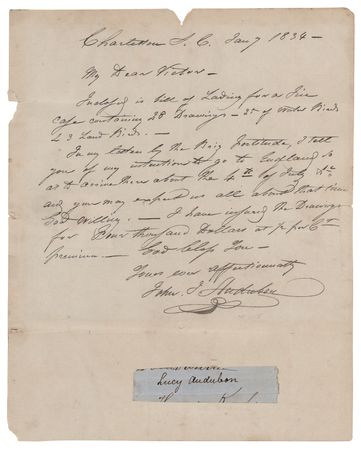 Charleston S. C. Jany 1834 –
My Dear Victor –
Inclosed is bill of Lading for a Tin
Case containing 28 Drawings – 25 of Water Birds
& 3 Land Birds. –
In my letter by the Brig Fortitude, I tell
you of my intentions to go to England so
as to arrive there about the 4th of July next
and you may expect us all about that time
God willing. – I have insured the Drawings
for Four thousand Dollars at
premium. –
God bless You –
Yours ever affectionately
John J. Audubon
Lucy Audubon